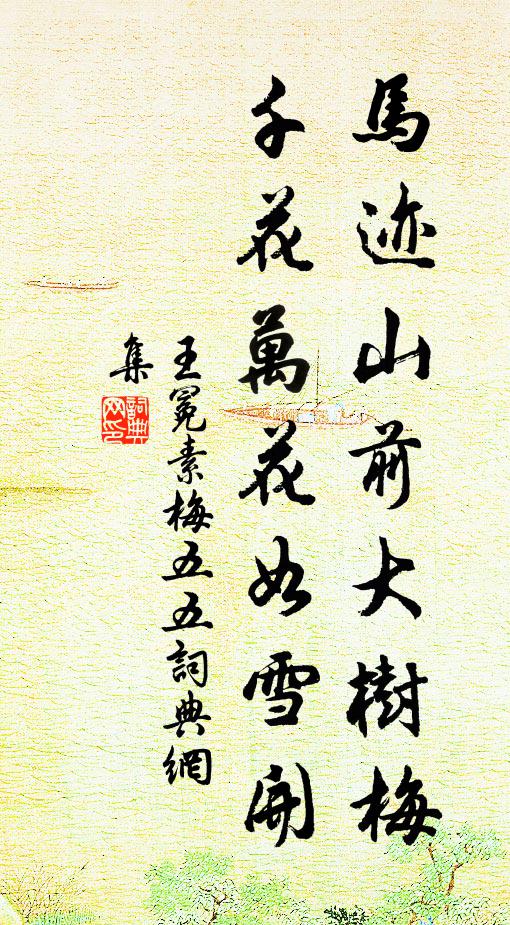 馬迹山前大樹梅
千花萬花如雪開
王冕素梅五五詞典網
集
詞典
网印